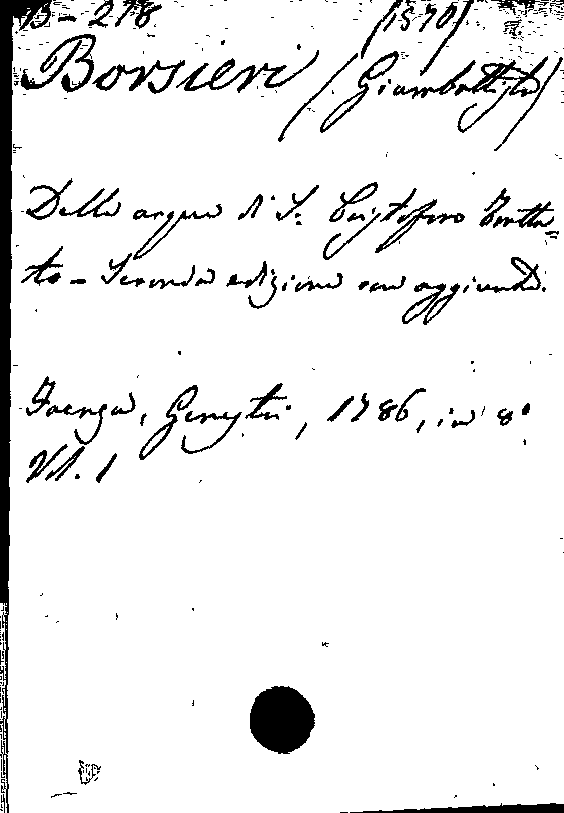 B - 218 (1570)
Borsieri (Giambattista)
Delle acque di S. Cristoforo Tratta=
to - Seconda edizione con aggiunte.
Faenza, Genestri, 1786, in 8°
Vol. 1